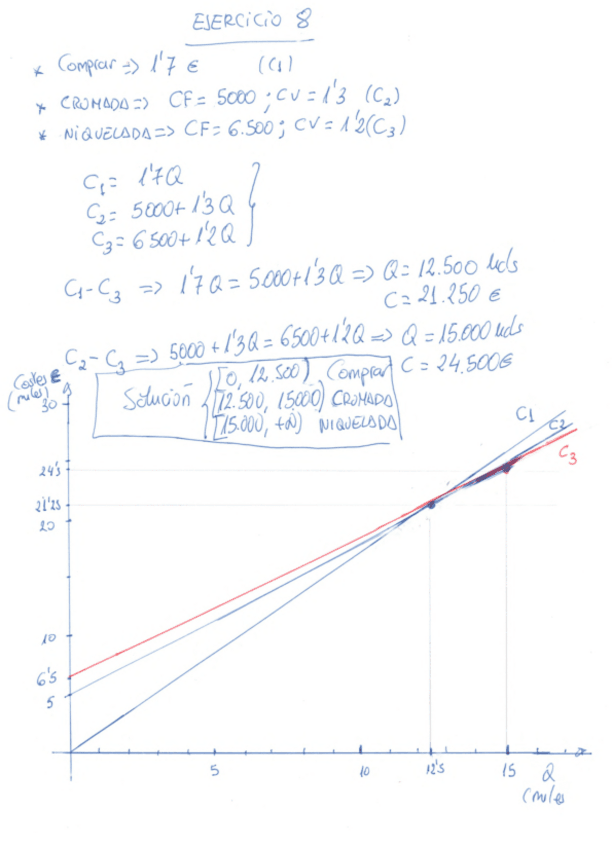 EJERCICIO 8
* Comprar => 1'7 € (C1)
* CROMADA => CF = 5000 ; CV = 1'3 (C2)
* NIQUELADA => CF = 6.500 ; CV = 1'2 (C3)
C1 = 1'7Q
C2 = 5000 + 1'3Q
C3 = 6500 + 1'2Q
C1-C3 => 1'7Q = 5.000 + 1'3Q => Q = 12.500 uds
C = 21.250 €
C2-C3 => 5000 + 1'3Q = 6500 + 1'2Q => Q = 15.000 uds
C = 24.500€
Solución
[0, 12.500) Comprar
[12.500, 15.000) CROMADA
[15.000, +∞) NIQUELADA
Costes €
(miles)
30
C1
C2
C3
24'5
21'25
20
10
6'5
5
5 10 12'5 15 Q
(miles